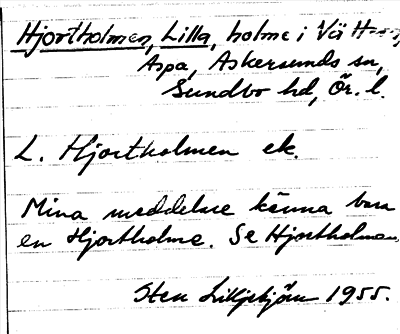 Hjortholmen, Lilla, holme i Vä
Aspa, Askersunds sn,
Sundbo hd, Ör. l.
L. Hjortholmen ek.
Mina meddelare känna bara
en Hjortholme. Se Hjortholmen.
Sten Liljebjörn 1955.